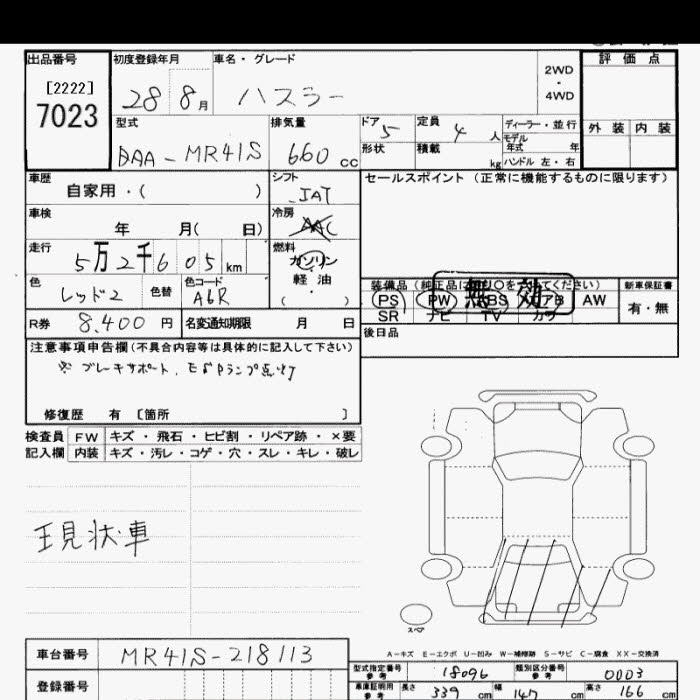 出品番号 初度登録年月 車名・グレード 評価点
[2222]
7023
28 8月 ハスラー 2WD・4WD
外装 内装
型式 排気量 ドア 定員 ディーラー・並行
DAA-MR41S 660cc 5 4人 モデル年式 年
形状 積載 kg ハンドル 左・右
車歴 シフト セールスポイント (正常に機能するものに限ります)
自家用・( ) IAT
車検 冷房
年 月( 日) AAC
走行 燃料
5万2千605km ガソリン・軽油・( )
色 色替 色コード 装備品 (純正品に 〇を てください) 新車保証書
レッド2 A6R PS PW ABS エアB AW 有・無
無効
SR ナビ TV カワ
R券 8,400円 名変通知期限 月 日 後日品
注意事項申告欄(不具合内容等は具体的に記入して下さい)
※ ブレーキサポート、ESPランプ点灯
修復歴 有 [箇所 ]
検査員 FW キズ・飛石・ヒビ割・リペア跡・×要
記入欄 内装 キズ・汚レ・コゲ・穴・スレ・キレ・破レ
現状車
スペア
A-キズ E-エクボ U-凹み W-補修跡 S-サビ C-腐食 XX-交換済
車台番号 MR41S-218113
型式指定番号 参考 18096 類別区分番号 参考 0003
登録番号
車庫証明用 参考 長さ 339cm 幅 147cm 高さ 166cm